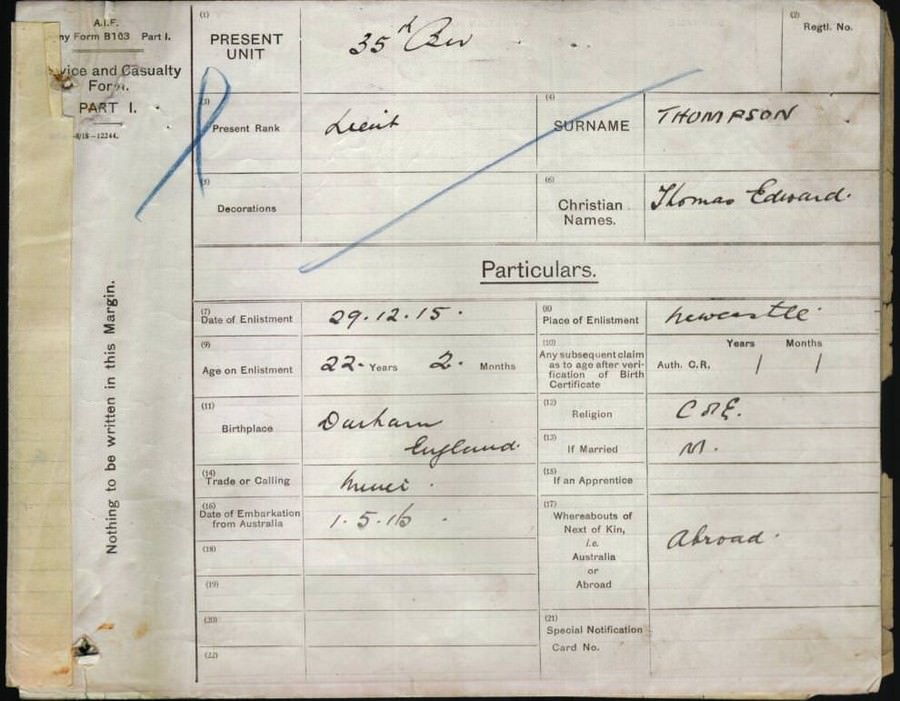 A.I.F.
ny Form B103 Part I.
vice and Casualty
Form.
PART I.
-8/18-12244.
Nothing to be written in this Margin.
(1)
PRESENT UNIT
35th Bn
(2)
Regtl. No.
(3)
Present Rank
Lieut
(4)
SURNAME
THOMPSON
(5)
Decorations
(6)
Christian
Names.
Thomas Edward.
Particulars.
(7)
Date of Enlistment
29.12.15.
(8)
Place of Enlistment
Newcastle
(9)
Age on Enlistment
22. Years 2. Months
(10)
Any subsequent claim
as to age after veri-
fication of Birth
Certificate
Years Months
Auth. C.R,
(11)
Birthplace
Durham
England.
(12)
Religion
C of E.
(13)
If Married
M.
(14)
Trade or Calling
Miner
(15)
If an Apprentice
(16)
Date of Embarkation
from Australia
1.5.16
(17)
Whereabouts of
Next of Kin,
i.e.
Australia
or
Abroad
Abroad.
(18)
(19)
(20)
(21)
Special Notification
Card No.
(22)